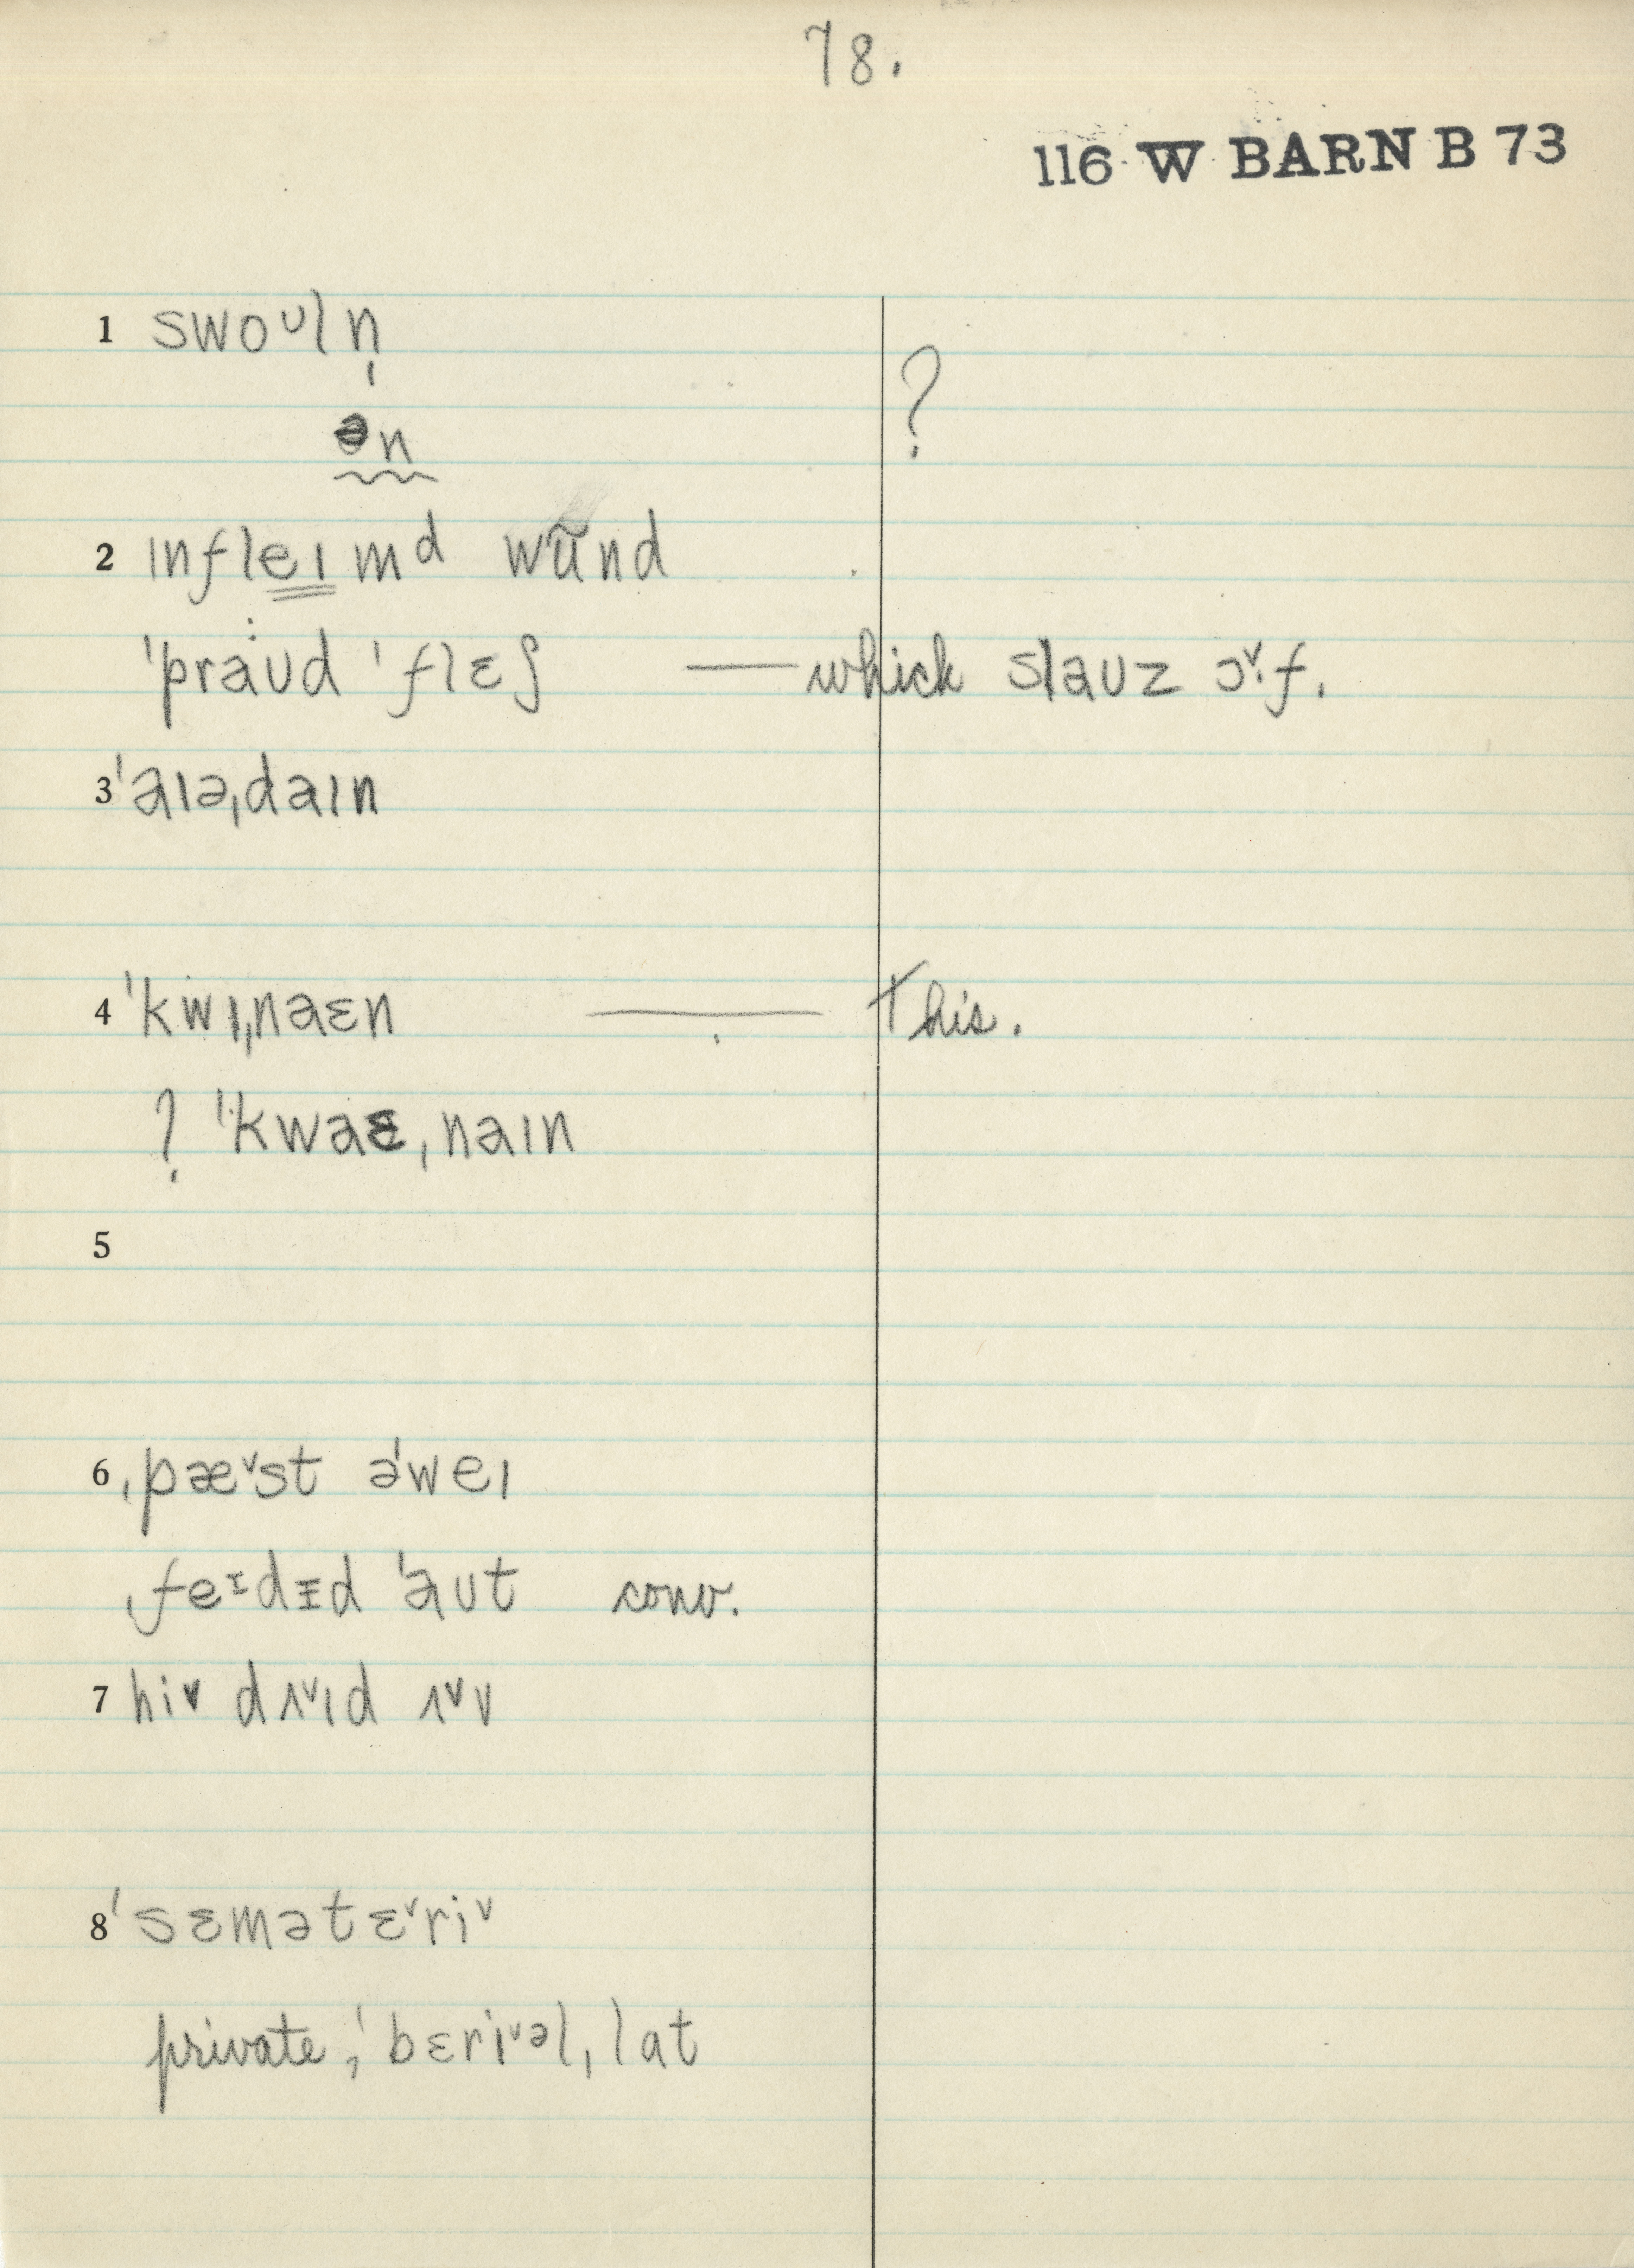 78.
116 W BARN B 73
1 swoᶷln̩
ən ?
2 ɪnfleɪmᵈ wũnd
ˈpraˑʊd ˈflɛʃ — which slaʊz ɔ˅·f.
3 ˈaɪəˌdaɪn
4 ˈkwɪˌnaɛn — this.
? ˈkwaɛˌnaɪn
5
6 ˌpæ˅st əˈweɪ
ˌfeᶦdɪd ˈaʊt conv.
7 hi˅ dʌ˅ɪd ʌ˅v
8 ˈsɛmətɛ˅ri˅
private, ˈbɛri˅əlˌlat